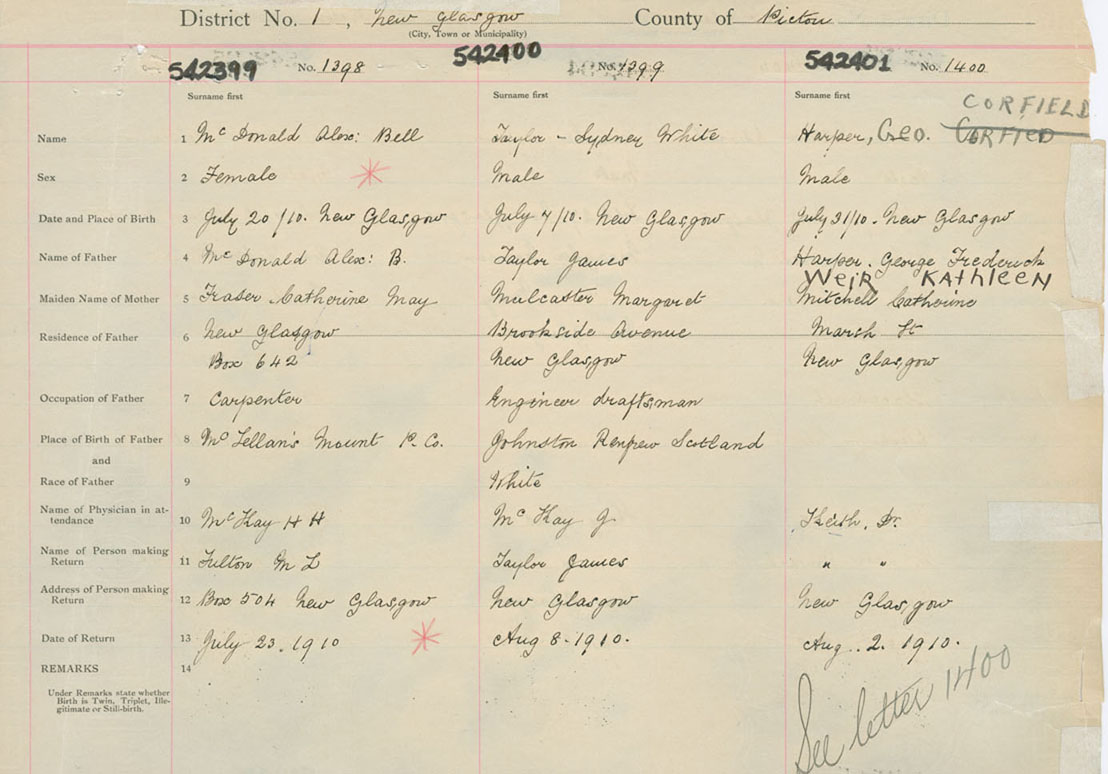 District No. 1, New Glasgow County of Pictou
(City, Town or Municipality)
542399 No. 1398 542400 No. 1399 542401 No. 1400
Surname first Surname first Surname first
CORFIELD
Name 1 Mc Donald Alex: Bell Taylor - Sydney White Harper, Geo. CORFIED
Sex 2 Female Male Male
Date and Place of Birth 3 July 20/10. New Glasgow July 4/10. New Glasgow July 31/10. New Glasgow
Name of Father 4 Mc Donald Alex: B. Taylor James Harper. George Frederick
WEIR KATHLEEN
Maiden Name of Mother 5 Fraser Catherine May Mulcaster Margaret Mitchell Catherine
Residence of Father 6 New Glasgow Brookside Avenue Marsh St
Box 642 New Glasgow New Glasgow
Occupation of Father 7 Carpenter Engineer draftsman
Place of Birth of Father 8 Mc Lellan's Mount P. Co. Johnston Renfrew Scotland
and
Race of Father 9 White
Name of Physician in at-
tendance 10 Mc Kay H H Mc Kay J. Keith, Dr.
Name of Person making
Return 11 Fulton M L Taylor James " "
Address of Person making
Return 12 Box 504 New Glasgow New Glasgow New Glasgow
Date of Return 13 July 23. 1910 Aug 8 - 1910. Aug. 2. 1910.
REMARKS 14
Under Remarks state whether
Birth is Twin, Triplet, Ille-
gitimate or Still-birth.
See letter 1400